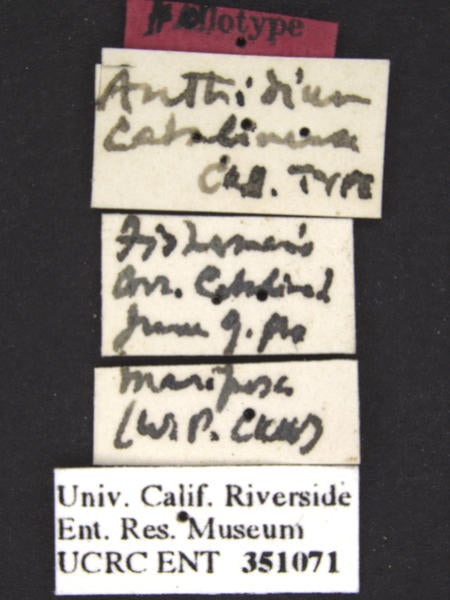 Anthidium
Catalinense
Ckll. TYPE
Fisherman's
Catalina I
June 9.
Mariposa
(W.P. Ckll)
Univ. Calif. Riverside
Ent. Res. Museum
UCRC ENT 351071